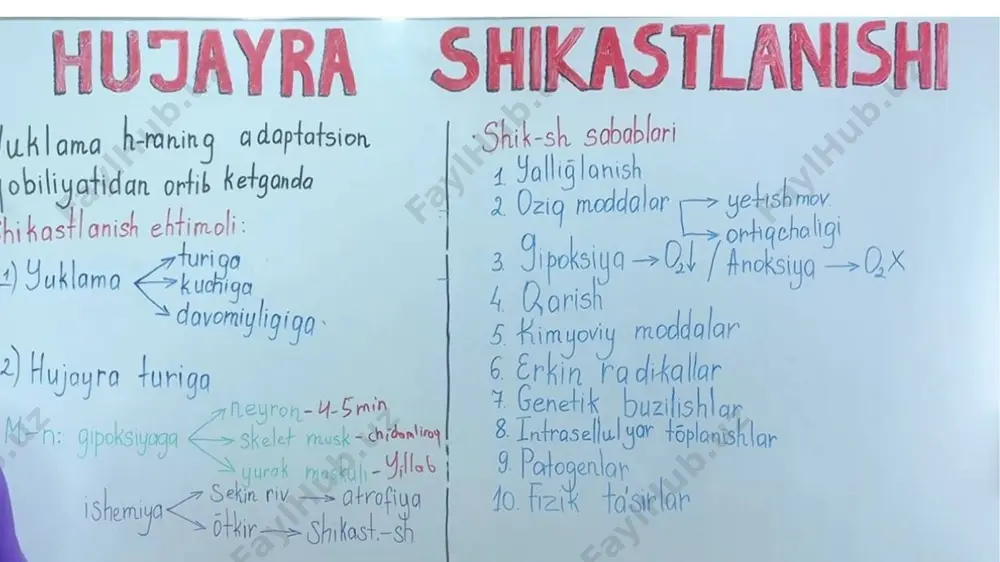 HUJAYRA SHIKASTLANISHI
Yuklama h-raning adaptatsion
qobiliyatidan ortib ketganda
Shikastlanish ehtimoli:
1) Yuklama → turiga
→ kuchiga
→ davomiyligiga.
2) Hujayra turiga
M-n: gipoksiyaga → neyron - 4-5 min
→ skelet musk - chidamliroq
→ yurak muskuli - Yillab
ishemiya → Sekin riv → atrofiya
→ ōtkir → Shikast.-sh
· Shik-sh sabablari
1 Yalliḡlanish
2 Oziq moddalar → yetishmov.
→ ortiqchaligi
3. Gipoksiya → O₂↓ / Anoksiya → O₂X
4. Qarish
5. Kimyoviy moddalar
6. Erkin radikallar
7. Genetik buzilishlar
8. Intrasellulyar tōplanishlar
9. Patogenlar
10. Fizik ta'sirlar
FaylHub.uz